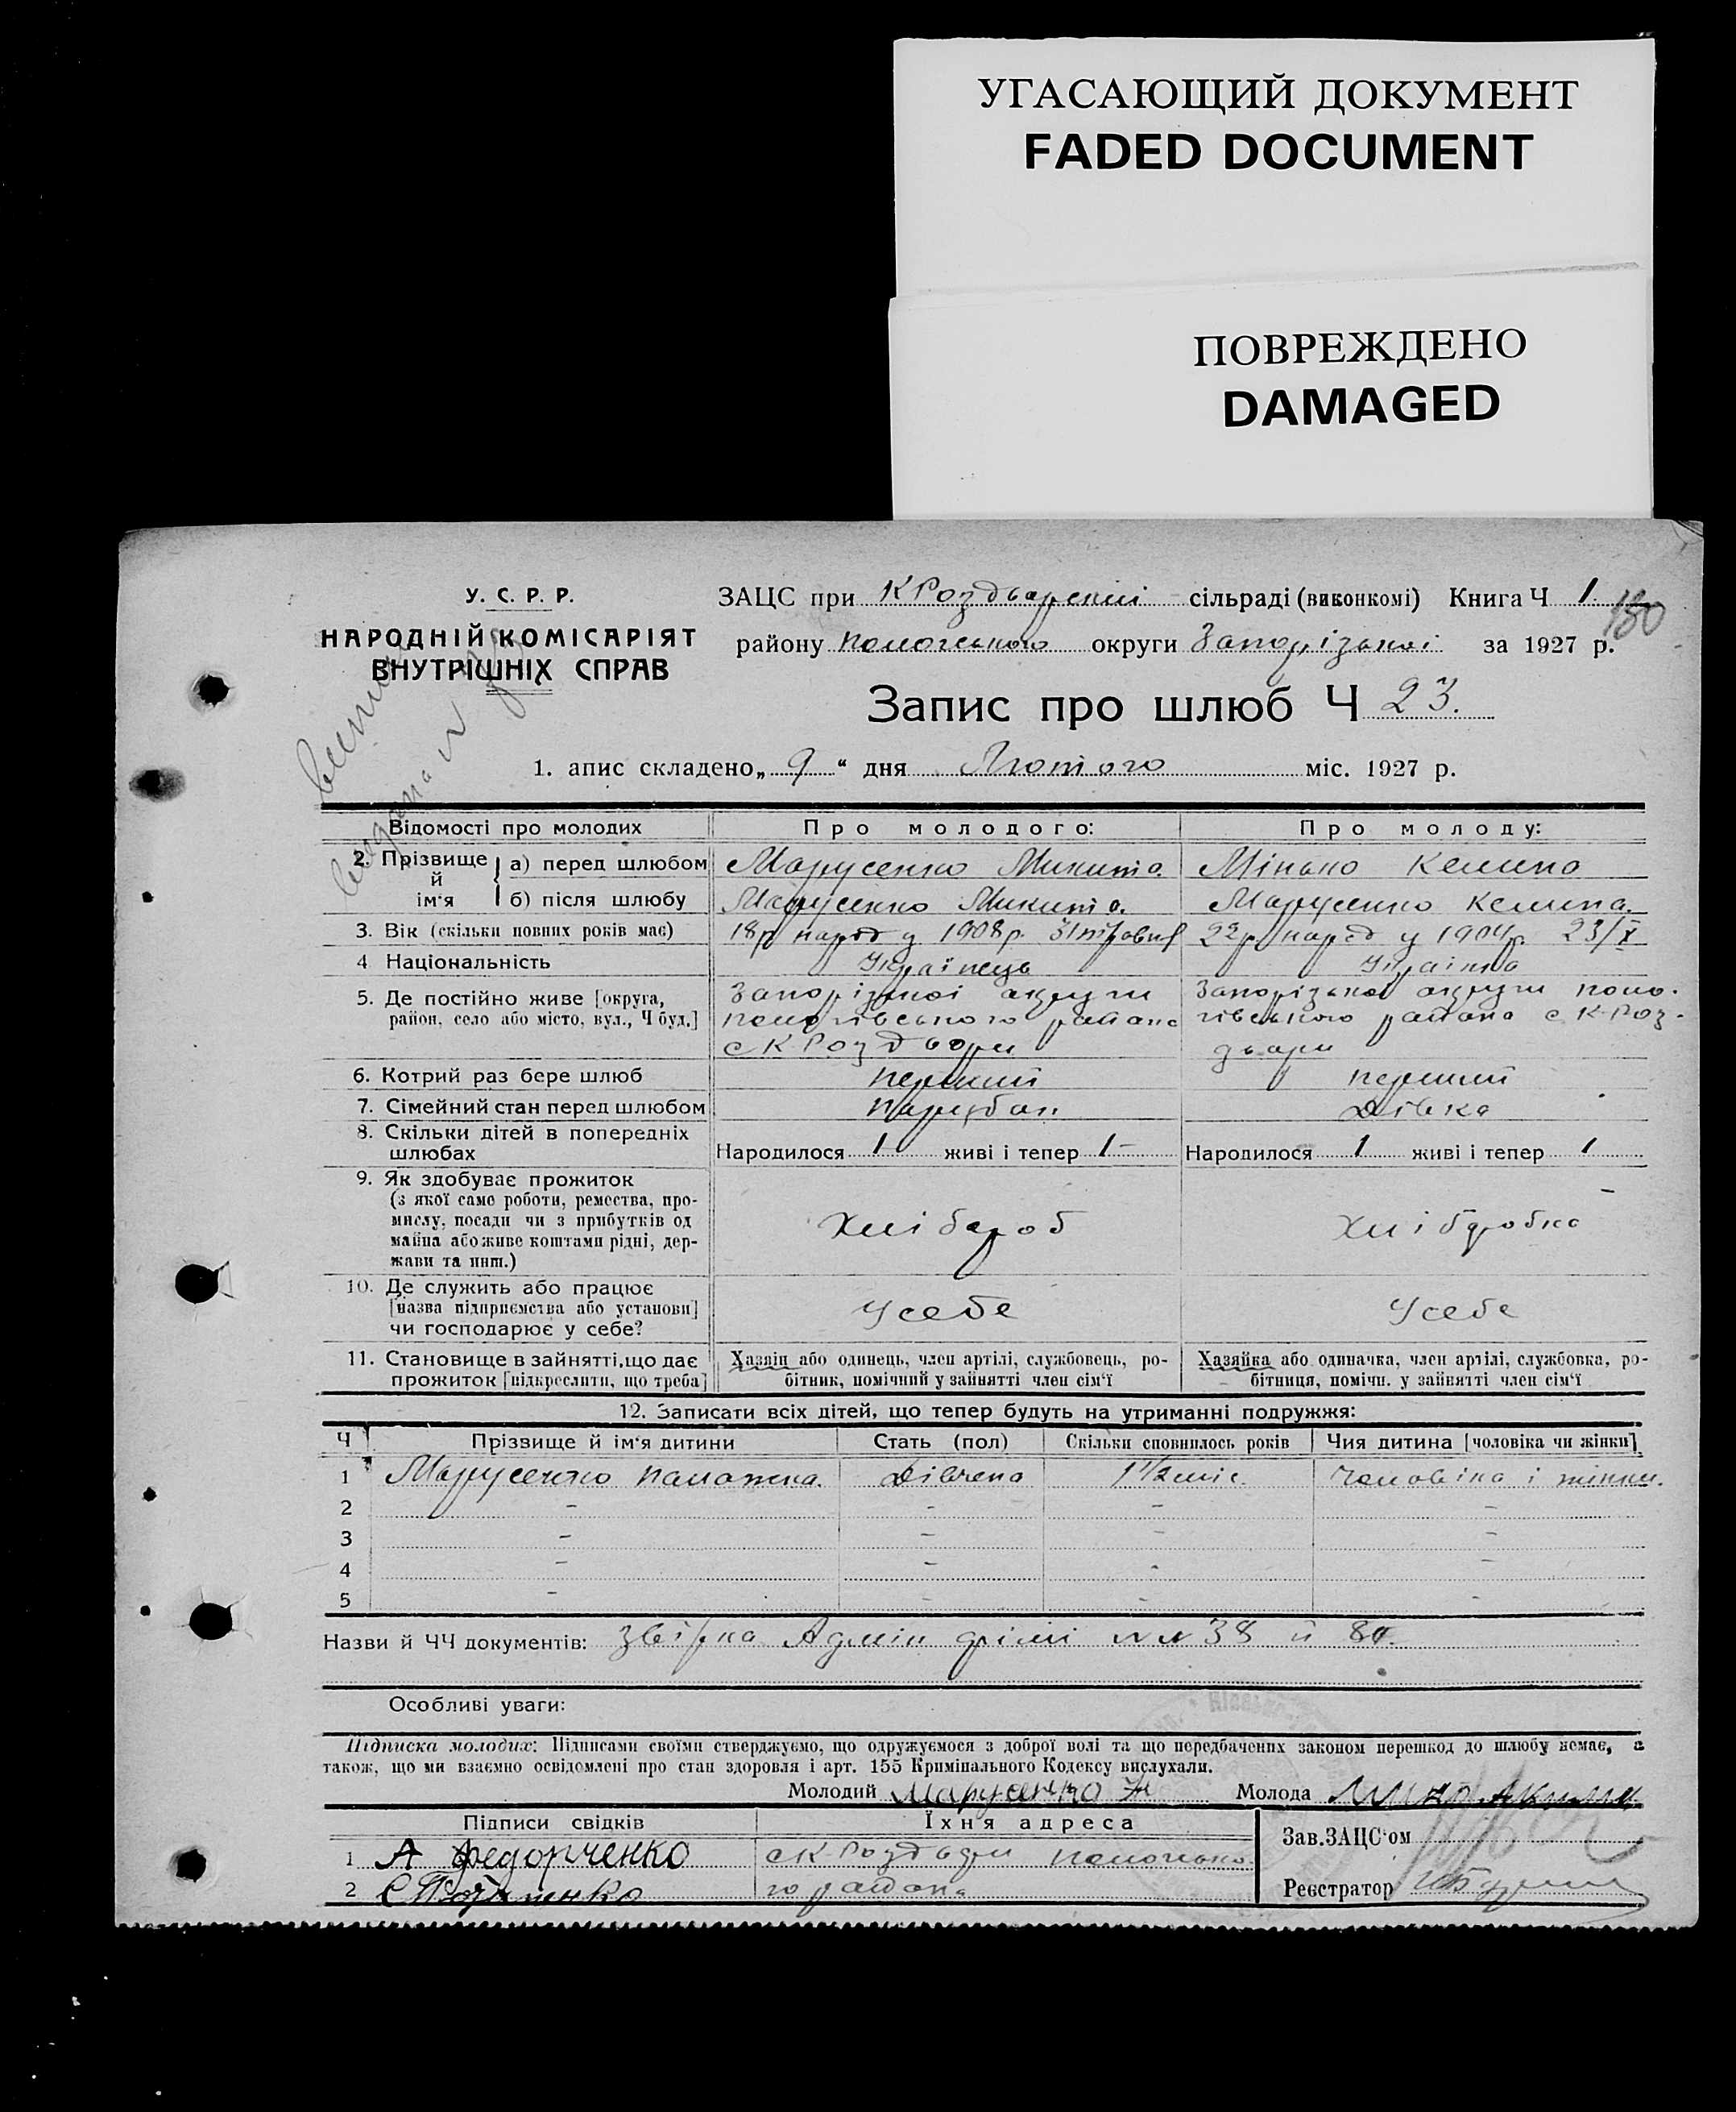 УГАСАЮЩИЙ ДОКУМЕНТ
FADED DOCUMENT
ПОВРЕЖДЕНО
DAMAGED
У. С. Р. Р.
НАРОДНІЙ КОМІСАРІЯТ
ВНУТРІШНІХ СПРАВ
ЗАЦС при К Роздварскій сільраді (виконкомі) Книга Ч 1
180
району пологського округи Запорізької за 1927 р.
Запис про шлюб Ч 23.
1. апис складено „ 9 “ дня Лютого міс. 1927 р.
Відомості про молодих Про молодого: Про молоду:
2. Прізвище й ім‘я а) перед шлюбом Марусенко Микита. Мінько Келина
б) після шлюбу Марусенко Микита. Марусенко Келина.
3. Вік (скільки повних років має) 18р народ у 1908р. 22р народ у 1904р. 23/X
4 Національність Українець Українка
5. Де постійно живе [округа, Запорізької округи Запорізької округи поло-
район, село або місто, вул., Ч буд.] пологівського района гівського района с К-Роз-
с К Роздвори двари
6. Котрий раз бере шлюб перший перший
7. Сімейний стан перед шлюбом парубок Дівка
8. Скільки дітей в попередніх
шлюбах Народилося 1 живі і тепер 1 – Народилося 1 живі і тепер 1
9. Як здобуває прожиток
(з якої саме роботи, ремества, про-
мислу, посади чи з прибутків од
майна або живе коштами рідні, дер-
жави та инш.)
Хлібороб Хліборобка
10. Де служить або працює
[назва підприємства або установи]
чи господарює у себе?
У себе У себе
11. Становище в зайнятті, що дає Хазяїн або одинець, член артілі, службовець, ро- Хазяйка або одиначка, член артілі, службовка, ро-
прожиток [підкреслити, що треба] бітник, помічний у зайнятті член сім‘ї бітниця, помічн. у зайнятті член сім‘ї
12. Записати всіх дітей, що тепер будуть на утриманні подружжя:
Ч Прізвище й ім‘я дитини Стать (пол) Скільки сповнилось років Чия дитина [чоловіка чи жінки]
1 Марусенко Палажка. Дівчена 1 1/2 міс. Чоловіка і жінки.
2 – – – –
3 – – – –
4 – – – –
5 – – – –
Назви й ЧЧ документів: Звірка Адмін NN 38 и 84.
Особливі уваги:
Підписка молодих: Підписами своїми стверджуємо, що одружуємося з доброї волі та що передбачених законом перешкод до шлюбу немає, а
також, що ми взаємно освідомлені про стан здоровля і арт. 155 Кримінального Кодексу вислухали.
Молодий Марусенко М Молода
Підписи свідків Їхн‘я адреса Зав.ЗАЦС‘ом
1 А Федорченко с К-Роздвори пологсько-
2 го района Реєстратор